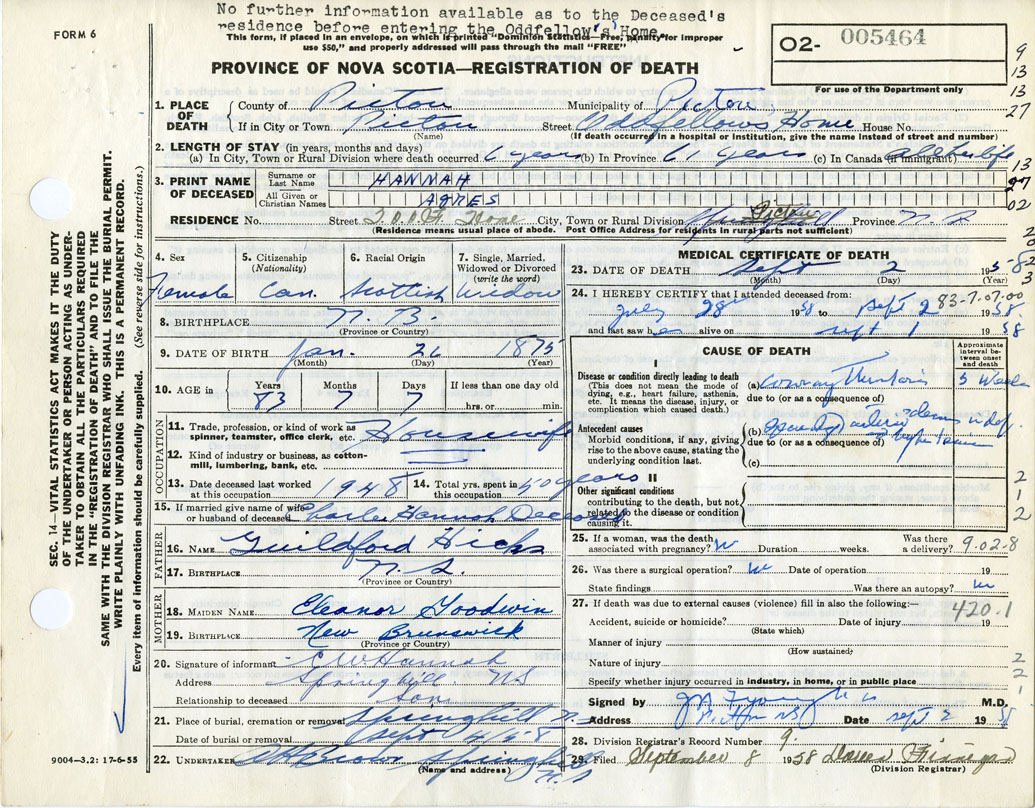 No further information available as to the Deceased's
residence before entering the Oddfellow's Home.
FORM 6
This form, if placed in an envelope, on which is printed "Dominion Statistics—Free, penalty for improper
use $50," and properly addressed will pass through the mail "FREE"
O2- 005464
For use of the Department only
PROVINCE OF NOVA SCOTIA—REGISTRATION OF DEATH
9
13
13
27
1. PLACE OF DEATH
County of Pictou Municipality of Pictou
If in City or Town Pictou Street Oddfellows Home House No.
(Name) (If death occurred in a hospital or institution, give the name instead of street and number)
2. LENGTH OF STAY (in years, months and days)
(a) In City, Town or Rural Division where death occurred 6 years (b) In Province 61 years (c) In Canada (if immigrant) all her life
13
27
02
3. PRINT NAME OF DECEASED
Surname or Last Name HANNAH
All Given or Christian Names AGNES
RESIDENCE No. Street I.O.O.F. Home City, Town or Rural Division Springhill Pictou Province N.S.
(Residence means usual place of abode. Post Office Address for residents in rural parts not sufficient)
SEC. 14—VITAL STATISTICS ACT MAKES IT THE DUTY
OF THE UNDERTAKER OR PERSON ACTING AS UNDER-
TAKER TO OBTAIN ALL THE PARTICULARS REQUIRED
IN THE "REGISTRATION OF DEATH" AND TO FILE THE
SAME WITH THE DIVISION REGISTRAR WHO SHALL ISSUE THE BURIAL PERMIT.
WRITE PLAINLY WITH UNFADING INK. THIS IS A PERMANENT RECORD.
Every item of information should be carefully supplied. (See reverse side for instructions.)
4. Sex Female
5. Citizenship (Nationality) Can.
6. Racial Origin Scottish
7. Single, Married, Widowed or Divorced (write the word) Widow
8. BIRTHPLACE N.B.
(Province or Country)
9. DATE OF BIRTH Jan. 26 1875
(Month) (Day) (Year)
10. AGE in Years 83 Months 7 Days 7 If less than one day old hrs. or min.
OCCUPATION
11. Trade, profession, or kind of work as spinner, teamster, office clerk, etc. Housewife
12. Kind of industry or business, as cotton-mill, lumbering, bank, etc.
13. Date deceased last worked at this occupation 1948
14. Total yrs. spent in this occupation 40 years
15. If married give name of wife or husband of deceased Charles Hannah Deceased
FATHER
16. NAME Guildford Hicks
17. BIRTHPLACE N.S.
(Province or Country)
MOTHER
18. MAIDEN NAME Eleanor Goodwin
19. BIRTHPLACE New Brunswick
(Province or Country)
20. Signature of informant E W Hannah
Address Springhill NS
Relationship to deceased Son
21. Place of burial, cremation or removal Springhill N.S.
Date of burial or removal Sept 4/58
22. UNDERTAKER Brown Springhill N.S.
(Name and address)
9004—3.2: 17-6-55
MEDICAL CERTIFICATE OF DEATH
23. DATE OF DEATH Sept 2 1958
(Month) (Day) (Year)
24. I HEREBY CERTIFY that I attended deceased from:
83-7.07.00
July 28 1958 to Sept 2 1958.
and last saw her alive on Sept 1 1958
CAUSE OF DEATH
Approximate interval between onset and death
I
Disease or condition directly leading to death
(This does not mean the mode of dying, e.g., heart failure, asthenia, etc. It means the disease, injury, or complication which caused death.)
(a) Coronary Thrombosis 5 Weeks
due to (or as a consequence of)
Antecedent causes
Morbid conditions, if any, giving rise to the above cause, stating the underlying condition last.
(b)
due to (or as a consequence of)
(c)
II
Other significant conditions
contributing to the death, but not related to the disease or condition causing it.
2
1
2
25. If a woman, was the death associated with pregnancy? No Duration weeks. Was there a delivery?
9.02-8
26. Was there a surgical operation? No Date of operation 19
State findings Was there an autopsy? No
27. If death was due to external causes (violence) fill in also the following:—
420.1
Accident, suicide or homicide? Date of injury 19
(State which)
Manner of injury
(How sustained)
Nature of injury
2
2
1
Specify whether injury occurred in industry, in home, or in public place
Signed by M.D.
Address Pictou NS Date Sept 2 1958
28. Division Registrar's Record Number 9.
29. Filed September 8 1958
(Division Registrar)